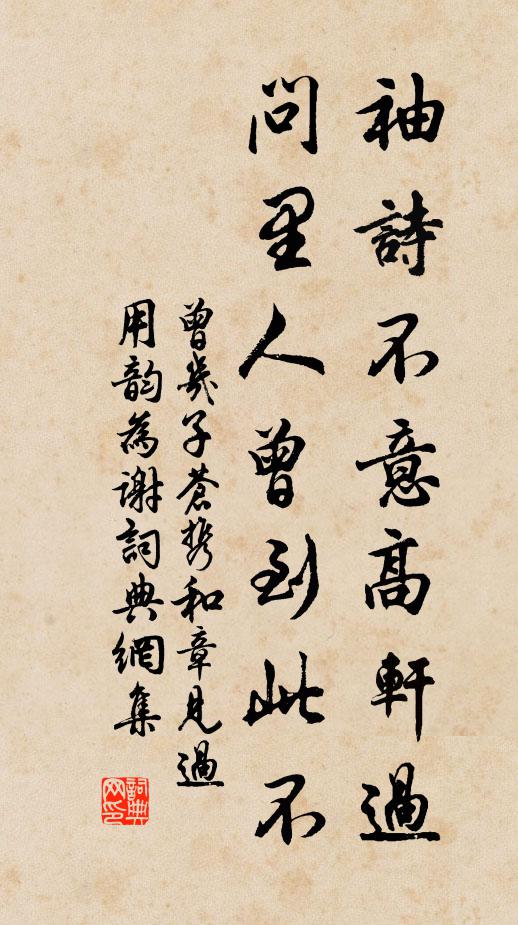 袖詩不意高軒過
問里人曾到此不
曾幾子蒼攜和章見過
用韵為謝詞典網集
詞典网印